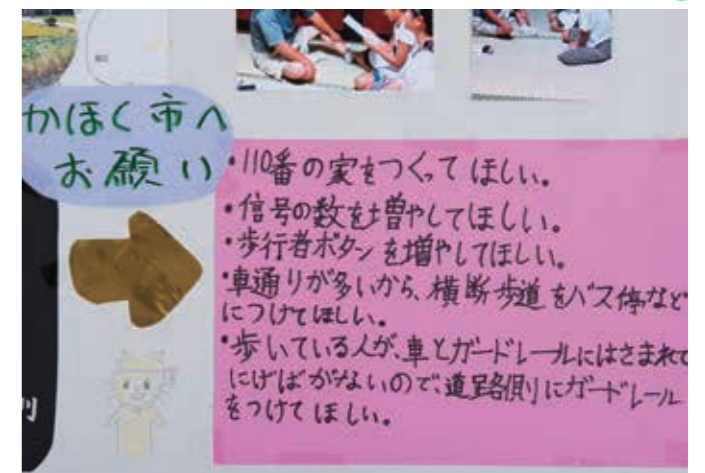 かほく市へ
お願い
・110番の家をつくってほしい。
・信号の数を増やしてほしい。
・歩行者ボタンを増やしてほしい。
・車通りが多いから、横断歩道をバス停など
につけてほしい。
・歩いている人が、車とガードレールにはさまれて
にげばがないので、道路側にガードレール
をつけてほしい。